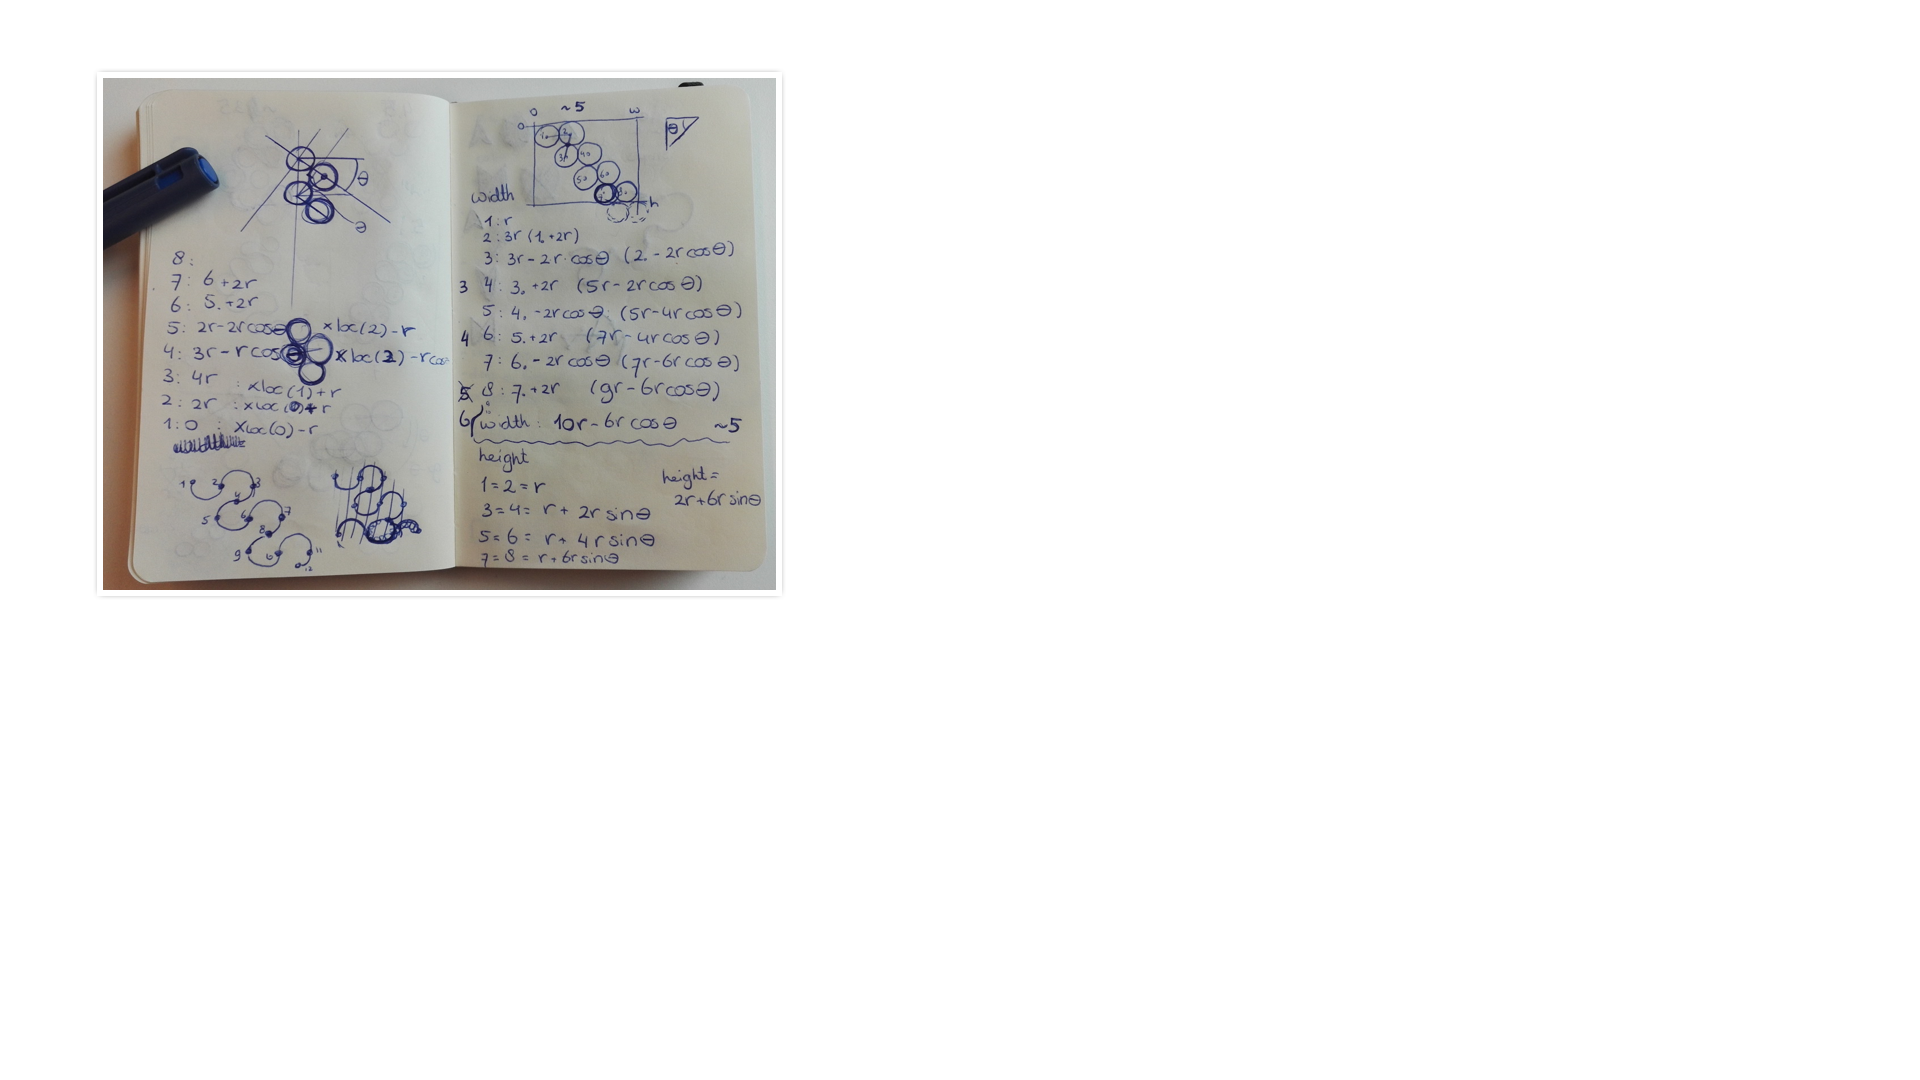 θ
θ
8:
7: 6 +2r
6: 5. +2r
5: 2r-2rcosθ xloc(2)-r
4: 3r-rcosθ xloc(2)-rcos
3: 4r : xloc(1)+r
2: 2r : xloc(0)+r
1: 0 : xloc(0)-r
1 2 3
4
5 6 7
8
9 11
12
0 ~5 w
0
1. 2.
3. 4.
5. 6.
8.
h
θ
width
1: r
2: 3r (1. +2r)
3: 3r-2r cosθ (2. -2r cosθ)
3 4: 3. +2r (5r-2rcosθ)
5: 4. -2rcosθ (5r-4rcosθ)
4 6: 5. +2r (7r-4rcosθ)
7: 6. -2rcosθ (7r-6rcosθ)
5 8: 7. +2r (9r-6rcosθ)
6 width: 10r-6r cosθ ~5
height
1=2=r
3=4= r+ 2r sinθ
5=6= r+ 4r sinθ
7=8= r+6r sinθ
height=
2r+6r sinθ